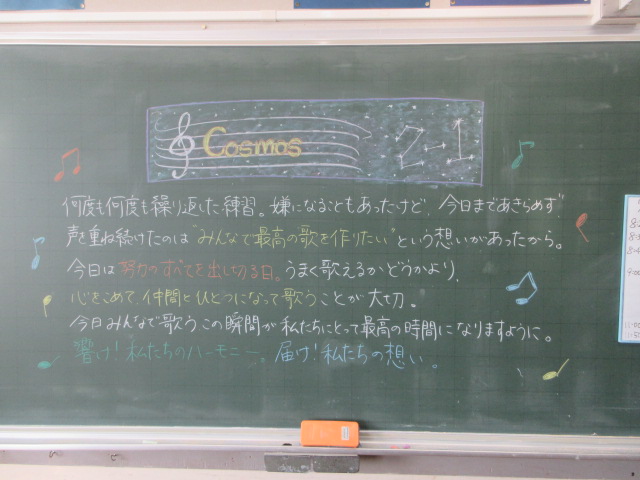 Cosmos 2-1
何度も何度も繰り返した練習。嫌になることもあったけど、今日まであきらめず
声を重ね続けたのは"みんなで最高の歌を作りたい"という想いがあったから。
今日は努力のすべてを出し切る日。うまく歌えるかどうかより、
心をこめて、仲間とひとつになって歌うことが大切。
今日みんなで歌うこの瞬間が私たちにとって最高の時間になりますように。
響け!私たちのハーモニー。届け!私たちの想い。